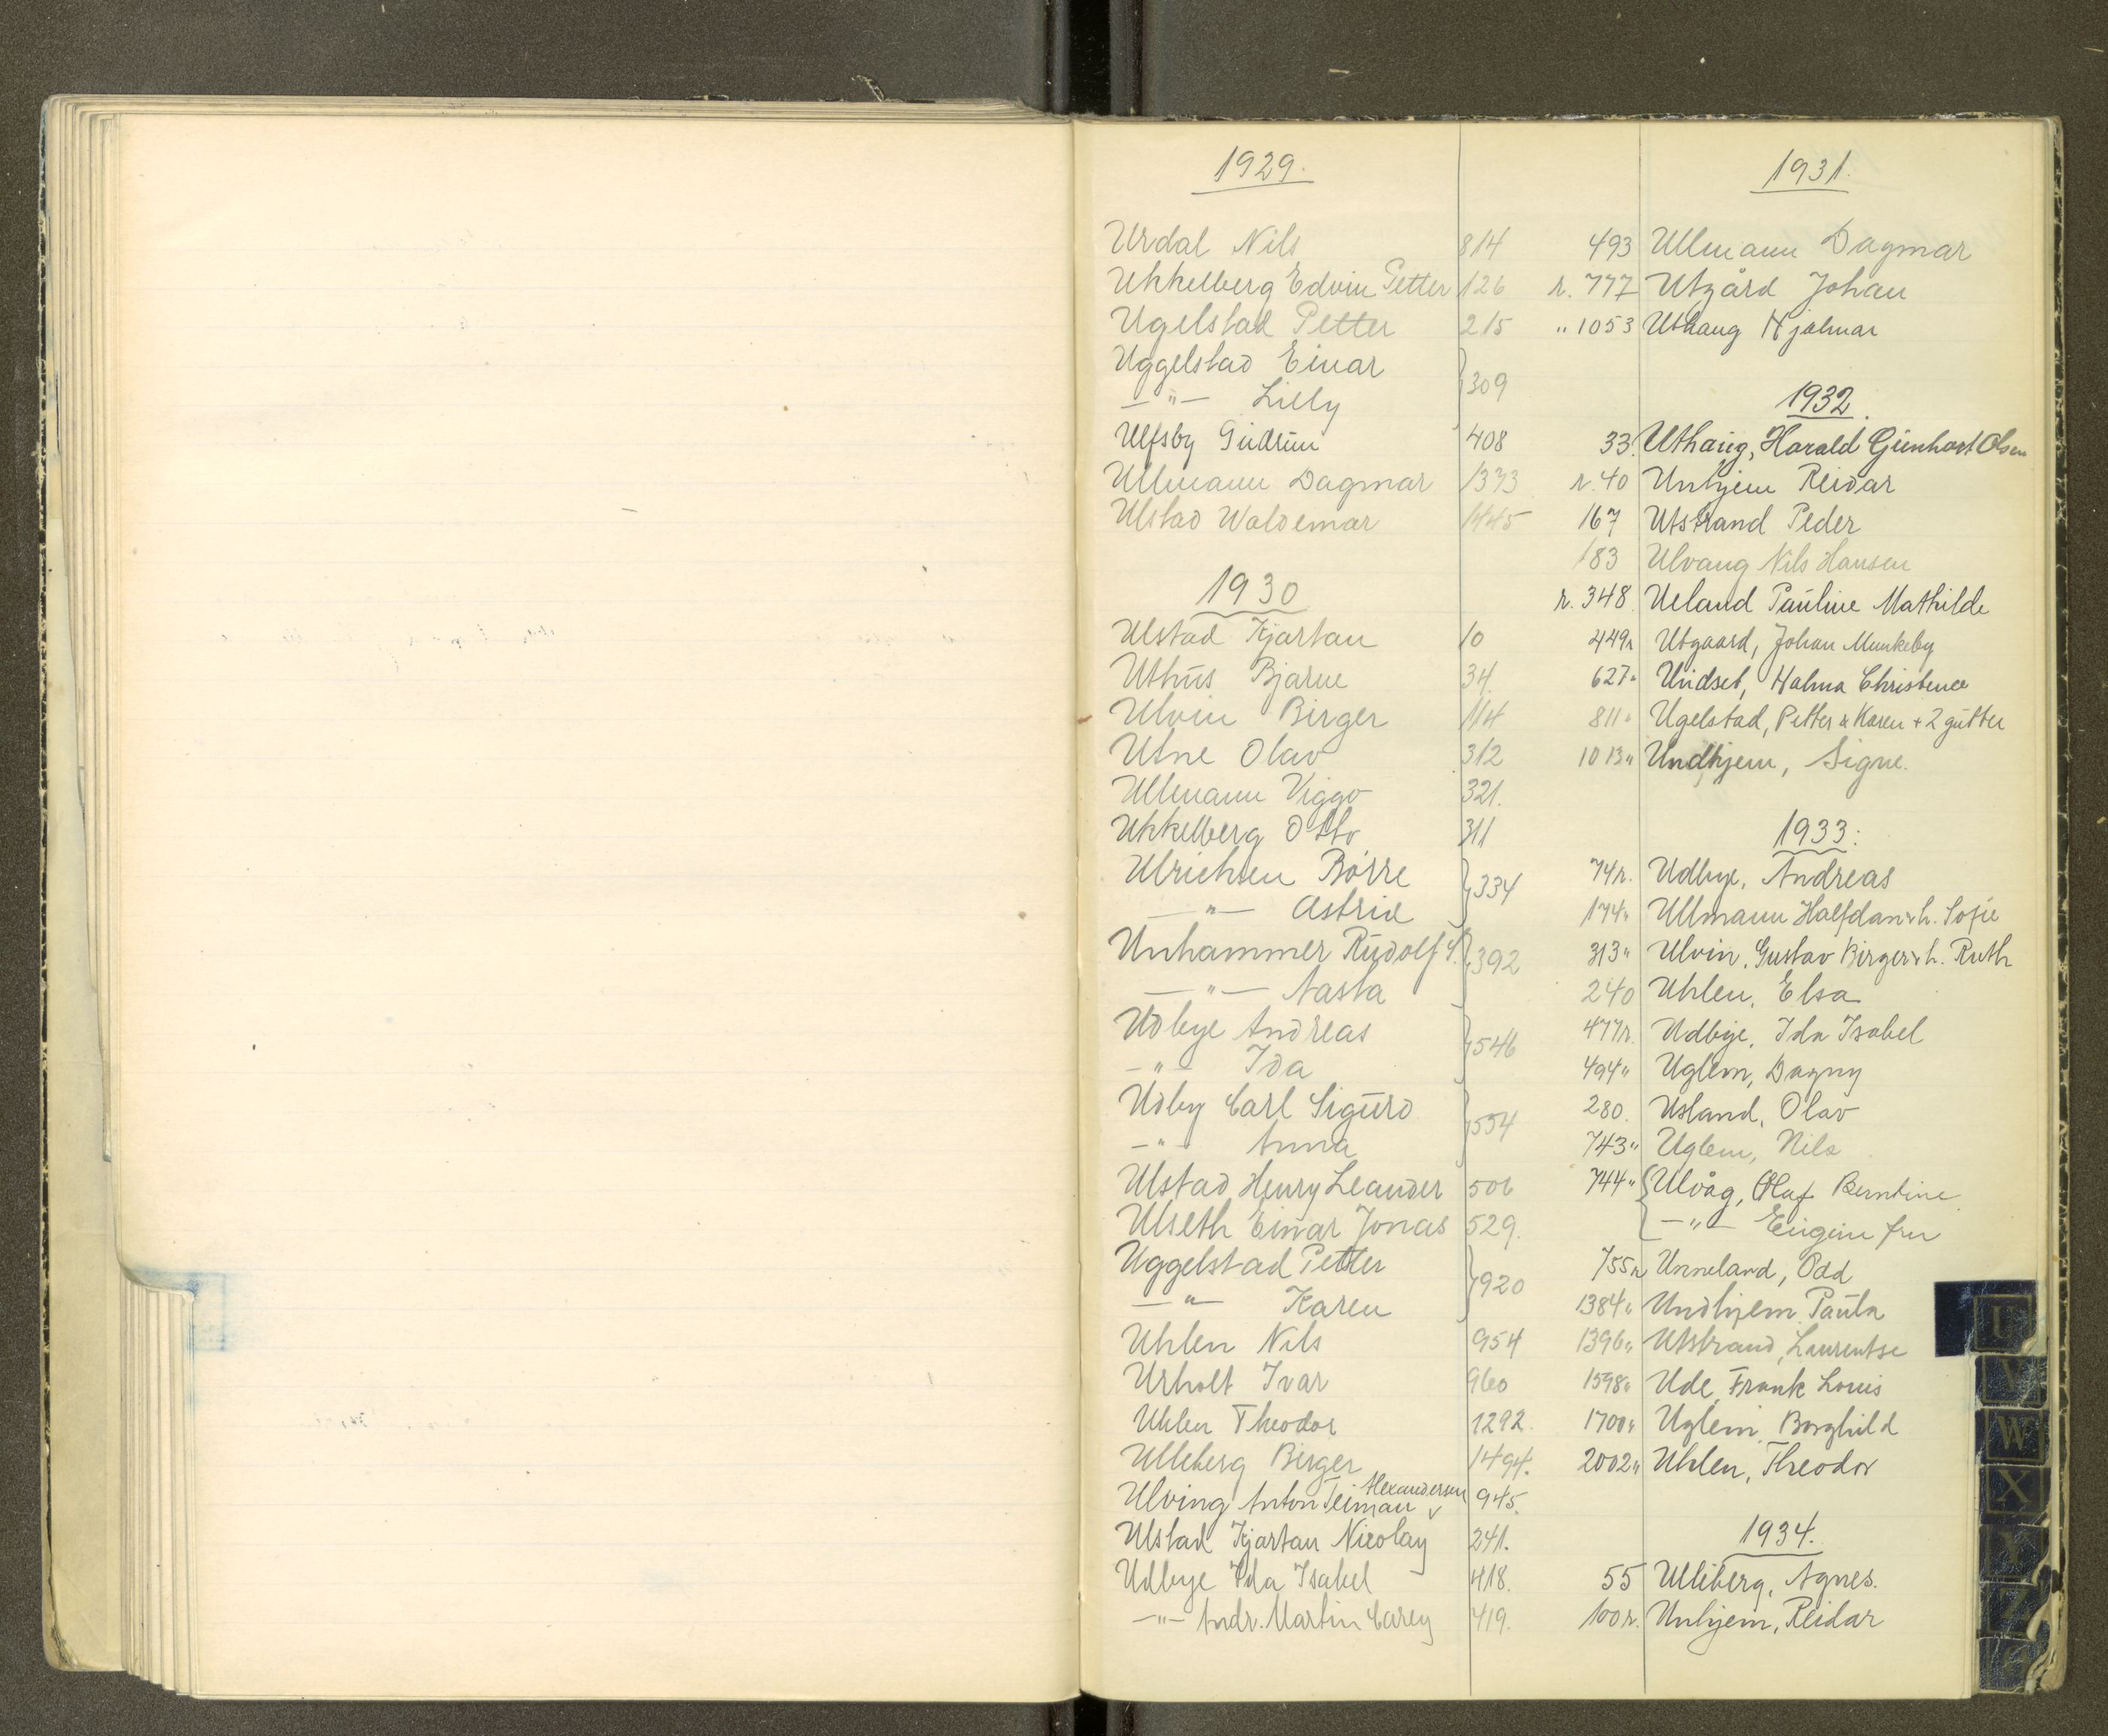 1929.
Urdal Nils 814
Ukkelberg Edvin Petter 126
Ugelstad Petter 215
Uggelstad Einar } 309
—"— Lilly
Ulfsby Gudrun 408
Ullmann Dagmar 1373
Ulstad Waldemar 1445
1930
Ulstad Kjartan 10
Uthus Bjarne 34.
Ulvin Birger 114
Utne Olav 312
Ullmann Viggo 321.
Ukkelberg Otto 311
Ulrichsen Börre } 334
—"— Astrid
Unhammer Rudolf S. } 392
—"— Aasta
Udbye Andreas } 546
—"— Ida
Udby Carl Sigurd } 554
—"— Anna
Ulstad Henry Leander 506
Ulseth Einar Jonas 529.
Uggelstad Petter } 920
—"— Karen
Uhlen Nils 954
Urholt Ivar 960
Uhlen Theodor 1292.
Ulleberg Birger 1494.
Alexandersen
Ulving Anton Teiman v 945.
Ulstad Kjartan Nicolay 241.
Udbye Ida Isabel 418.
—"— Andr. Martin Carey 419.
1931.
493 Ullmann Dagmar
r. 777 Utgård Johan
" 1053 Uthaug Hjalmar
1932.
33. Uthaug, Harald Gunhart Olsen
r. 40 Unhjem Reidar
167 Utstrand Peder
183 Ulvang Nils Hansen
r. 348. Ueland Pauline Mathilde
449r Utgaard, Johan Munkeby
627" Undset, Halma Christence
811" Ugelstad, Petter & Karen + 2 gutter
1013" Undhjem, Signe.
1933:
74r. Udbye, Andreas
174" Ullmann Halfdan & h. Sofie
313" Ulvin, Gustav Birger & h. Ruth
240 Uhlen, Elsa
477r. Udbye, Ida Isabel
494" Uglem, Dagny
280. Usland, Olav
743" Uglem, Nils
744" { Ulvåg, Olaf Berntine
—"— Eugenu fru
755r Unneland, Odd
1384" Undhjem, Paula
1396" Utstrand, Laurentse
1598" Ude, Frank Louis
1700" Uglem, Borghild
2002" Uhlen, Theodor
1934.
55 Ulleberg, Agnes.
100r. Unhjem, Reidar
U
V
W
X
Y
Z